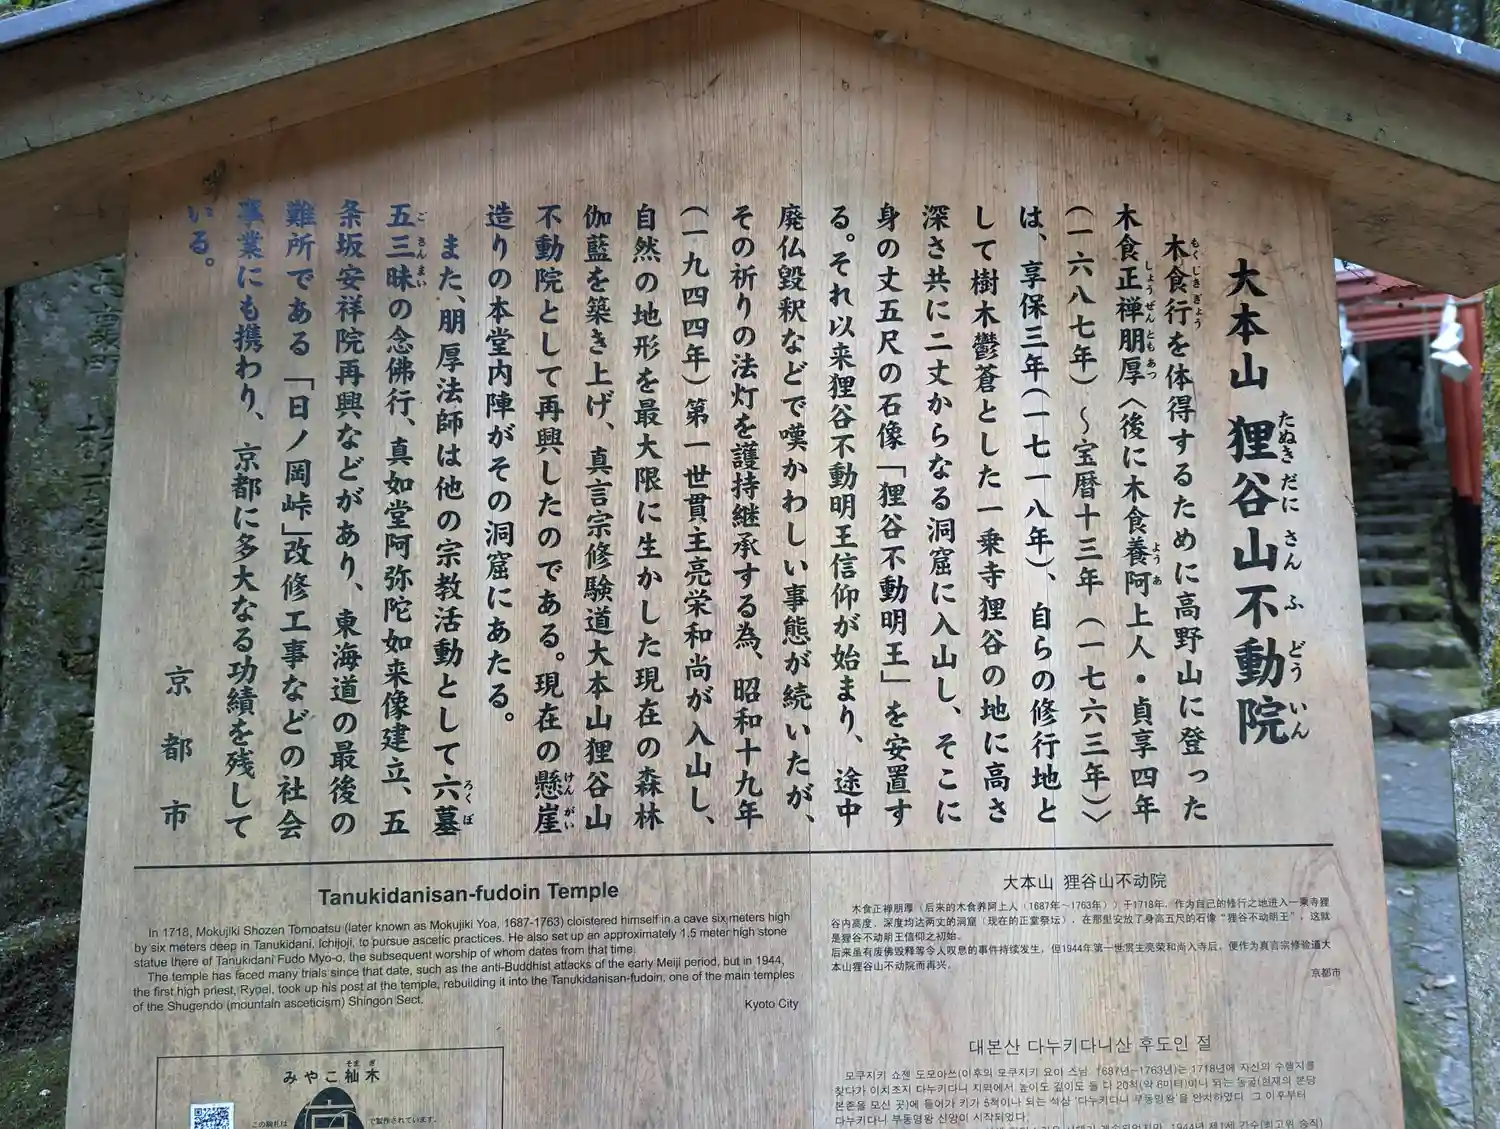 大本山 狸谷山不動院
たぬきだにさんふどういん
木食行を体得するために高野山に登った
もくじきぎょう
木食正禅朋厚〈後に木食養阿上人・貞享四年
しょうぜんともあつ ようあ
(一六八七年)～宝暦十三年(一七六三年)〉
は、享保三年(一七一八年)、自らの修行地と
して樹木鬱蒼とした一乗寺狸谷の地に高さ
深さ共に二丈からなる洞窟に入山し、そこに
身の丈五尺の石像「狸谷不動明王」を安置す
る。それ以来狸谷不動明王信仰が始まり、途中
廃仏毀釈などで嘆かわしい事態が続いたが、
その祈りの法灯を護持継承する為、昭和十九年
(一九四四年)第一世貫主亮栄和尚が入山し、
自然の地形を最大限に生かした現在の森林
伽藍を築き上げ、真言宗修験道大本山狸谷山
不動院として再興したのである。現在の懸崖
けんがい
造りの本堂内陣がその洞窟にあたる。
また、朋厚法師は他の宗教活動として六墓
ろくぼ
五三昧の念佛行、真如堂阿弥陀如来像建立、五
ごさんまい
条坂安祥院再興などがあり、東海道の最後の
難所である「日ノ岡峠」改修工事などの社会
事業にも携わり、京都に多大なる功績を残して
いる。
京都市
Tanukidanisan-fudoin Temple
In 1718, Mokujiki Shozen Tomoatsu (later known as Mokujiki Yoa, 1687-1763) cloistered himself in a cave six meters high
by six meters deep in Tanukidani, Ichijoji, to pursue ascetic practices. He also set up an approximately 1.5 meter high stone
statue there of Tanukidani Fudo Myo-o, the subsequent worship of whom dates from that time.
The temple has faced many trials since that date, such as the anti-Buddhist attacks of the early Meiji period, but in 1944,
the first high priest, Ryoei, took up his post at the temple, rebuilding it into the Tanukidanisan-fudoin, one of the main temples
of the Shugendo (mountain asceticism) Shingon Sect.
Kyoto City
大本山 狸谷山不动院
木食正禅朋厚（后来的木食养阿上人（1687年～1763年））于1718年，作为自己的修行之地进入一乘寺狸
谷内高度、深度均达两丈的洞窟（现在的正堂祭坛），在那里安放了身高五尺的石像“狸谷不动明王”，这就
是狸谷不动明王信仰之初始。
后来虽有废佛毁释等令人叹息的事件持续发生，但1944年第一世贯主亮荣和尚入寺后，便作为真言宗修验道大
本山狸谷山不动院而再兴。
京都市
대본산 다누키다니산 후도인 절
모쿠지키 쇼젠 도모아쓰(이후의 모쿠지키 요아 스님, 1687년~1763년)는 1718년에 자신의 수행지를
찾다가 이치조지 다누키다니 지역에서 높이도 깊이도 둘 다 20척(약 6미터)이나 되는 동굴(현재의 본당
본존을 모신 곳)에 들어가 키가 5척이나 되는 석상 '다누키다니 부동명왕'을 안치하였다. 그 이후부터
다누키다니 부동명왕 신앙이 시작되었다.
みやこ杣木
そまぎ
この駒札は
で製作されています。